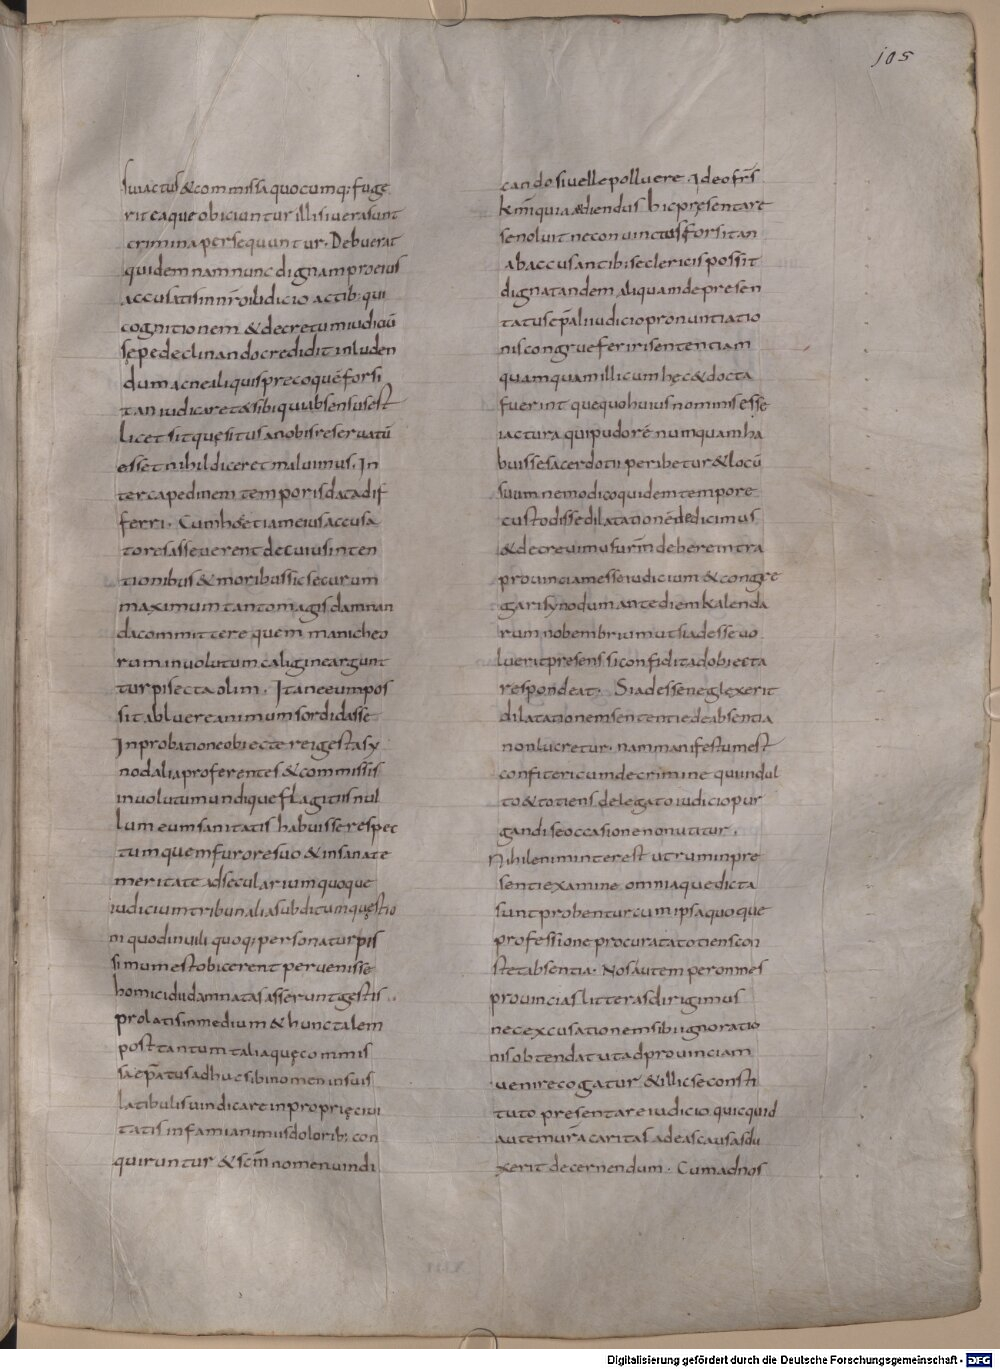 105
sui actus & commissa quocumq; fuge
rit eaque obiciuntur illi si uera sunt
crimina persequuntur. Debuerat
quidem nam nunc dignam pro eius
accusatis in nr̄o iudicio actib; qui
cognitionem & decretum iudicū
sępe declinando credidit inluden
dum ac ne aliquis precoquē forsi
tan iudicaret & sibi quub sensus est
licet sit quęsitus a nobis reseruatū
esset nihil dicere maluimus. In
tercapedinem temporis data dif
ferri. Cum hoc etiam eius accusa
tores asseuerent de cuius inten
tionibus & moribus sic securum
maximum tanto magis damnan
da committere quem manicheo
rum inuolutum caligine argunt
turpi secta olim. Itane eum pos
sit abluere animum sordidasse
In probatione obiecte rei gesta sy
nodalia proferentes & commissis
inuolutum undique flagitiis nul
lum eum sanitatis habuisse respec
tum quem furore suo & insana te
meritate ad secularium quoque
iudicium tribunalia subditum quęstio
ni quod in uili quoq; persona turpis
simum est obicerent peruenisse
homicidii damnatas asserunt gestis..
prolatis in medium & hunc talem
post tantum talia quę commis
sa ep̄atus adhuc sibi nomen in suis
latibulis uindicare in proprię ciui
tatis infamia nimis dolorib; con
quiruntur & sc̄m nomen uindi
cando si uelle polluere. Adeo fr̄s
k̄mi quia audiendus hic pręsentare
se noluit ne conuinctus forsitan
ab accusantib; se clericis possit
digna tandem aliquam de presen
tatus ep̄ali iudicio pronuntiatio
nis congrue feriri sententiam
quamquam illi cum hęc & docta
fuerint que quo huius nominis esse
iactura qui pudorē numquam ha
buisse sacerdotii peribetur & locū
suum ne modico quidem tempore
custodisse dilatationē dedicimus
& decreuimus ur̄m debere intra
prouinciam esse iudicium & congre
gari synodum ante diem kalenda
rum nobembrium ut si adesse uo
luerit presens si confidit ad obiecta
respondeat. Si adesse neglexerit
dilatationem sententie de absentia
non lucretur. nam manifestum est
confiteri cum de crimine qui indul
to & totiens delegato iudicio pur
gandi se occasione non utitur.
Nihil enim interest utrum in pre
senti examine omnia que dicta
sunt probentur cum ipsa quoque
professione procurata totiens con
stet absentia. Nos autem per omnes
prouincias litteras dirigimus
nec excusationem sibi ignoratio
nis obtendat ut ad prouinciam
uenire cogatur & illic se consti
tuto presentare iudicio. quicquid
autem ur̄a caritas ad eas causas du
xerit decernendum. Cum ad nos
Digitalisierung gefördert durch die Deutsche Forschungsgemeinschaft - DFG